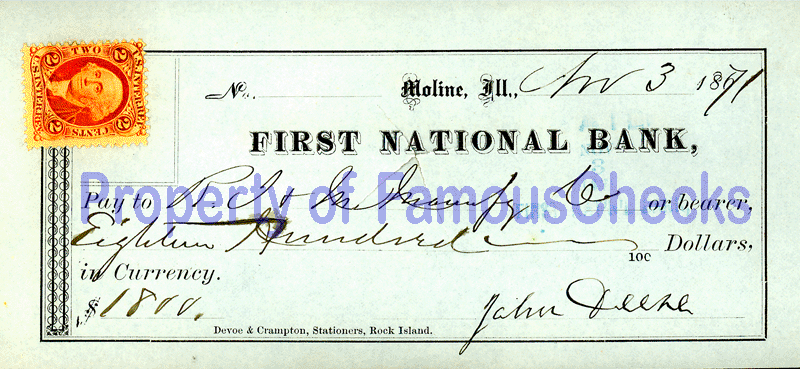 TWO
2 2
U.S. INTER. REV.
2 CENTS 2
No. Moline, Ill., Nov 3 1871
FIRST NATIONAL BANK,
Property of FamousChecks
Pay to Co or bearer,
Eighteen Hundred 100 Dollars,
in Currency.
$1800.
John Deere
Devoe & Crampton, Stationers, Rock Island.